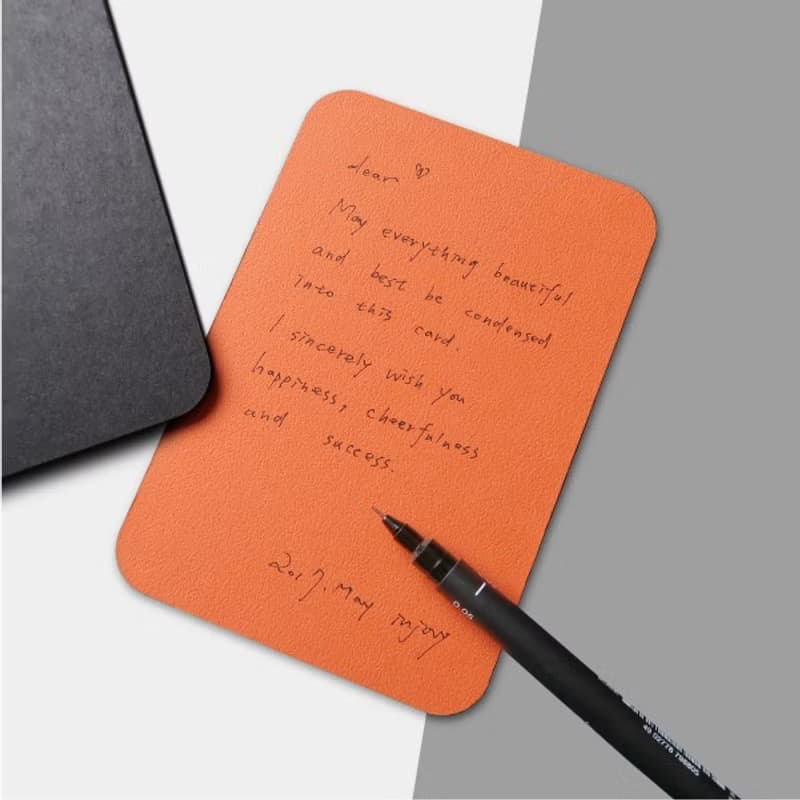 dear ♡
May everything beautiful
and best be condensed
into this card.
I sincerely wish you
happiness, cheerfulness
and success.
2017. May injoy
0.05
49 02778 798805